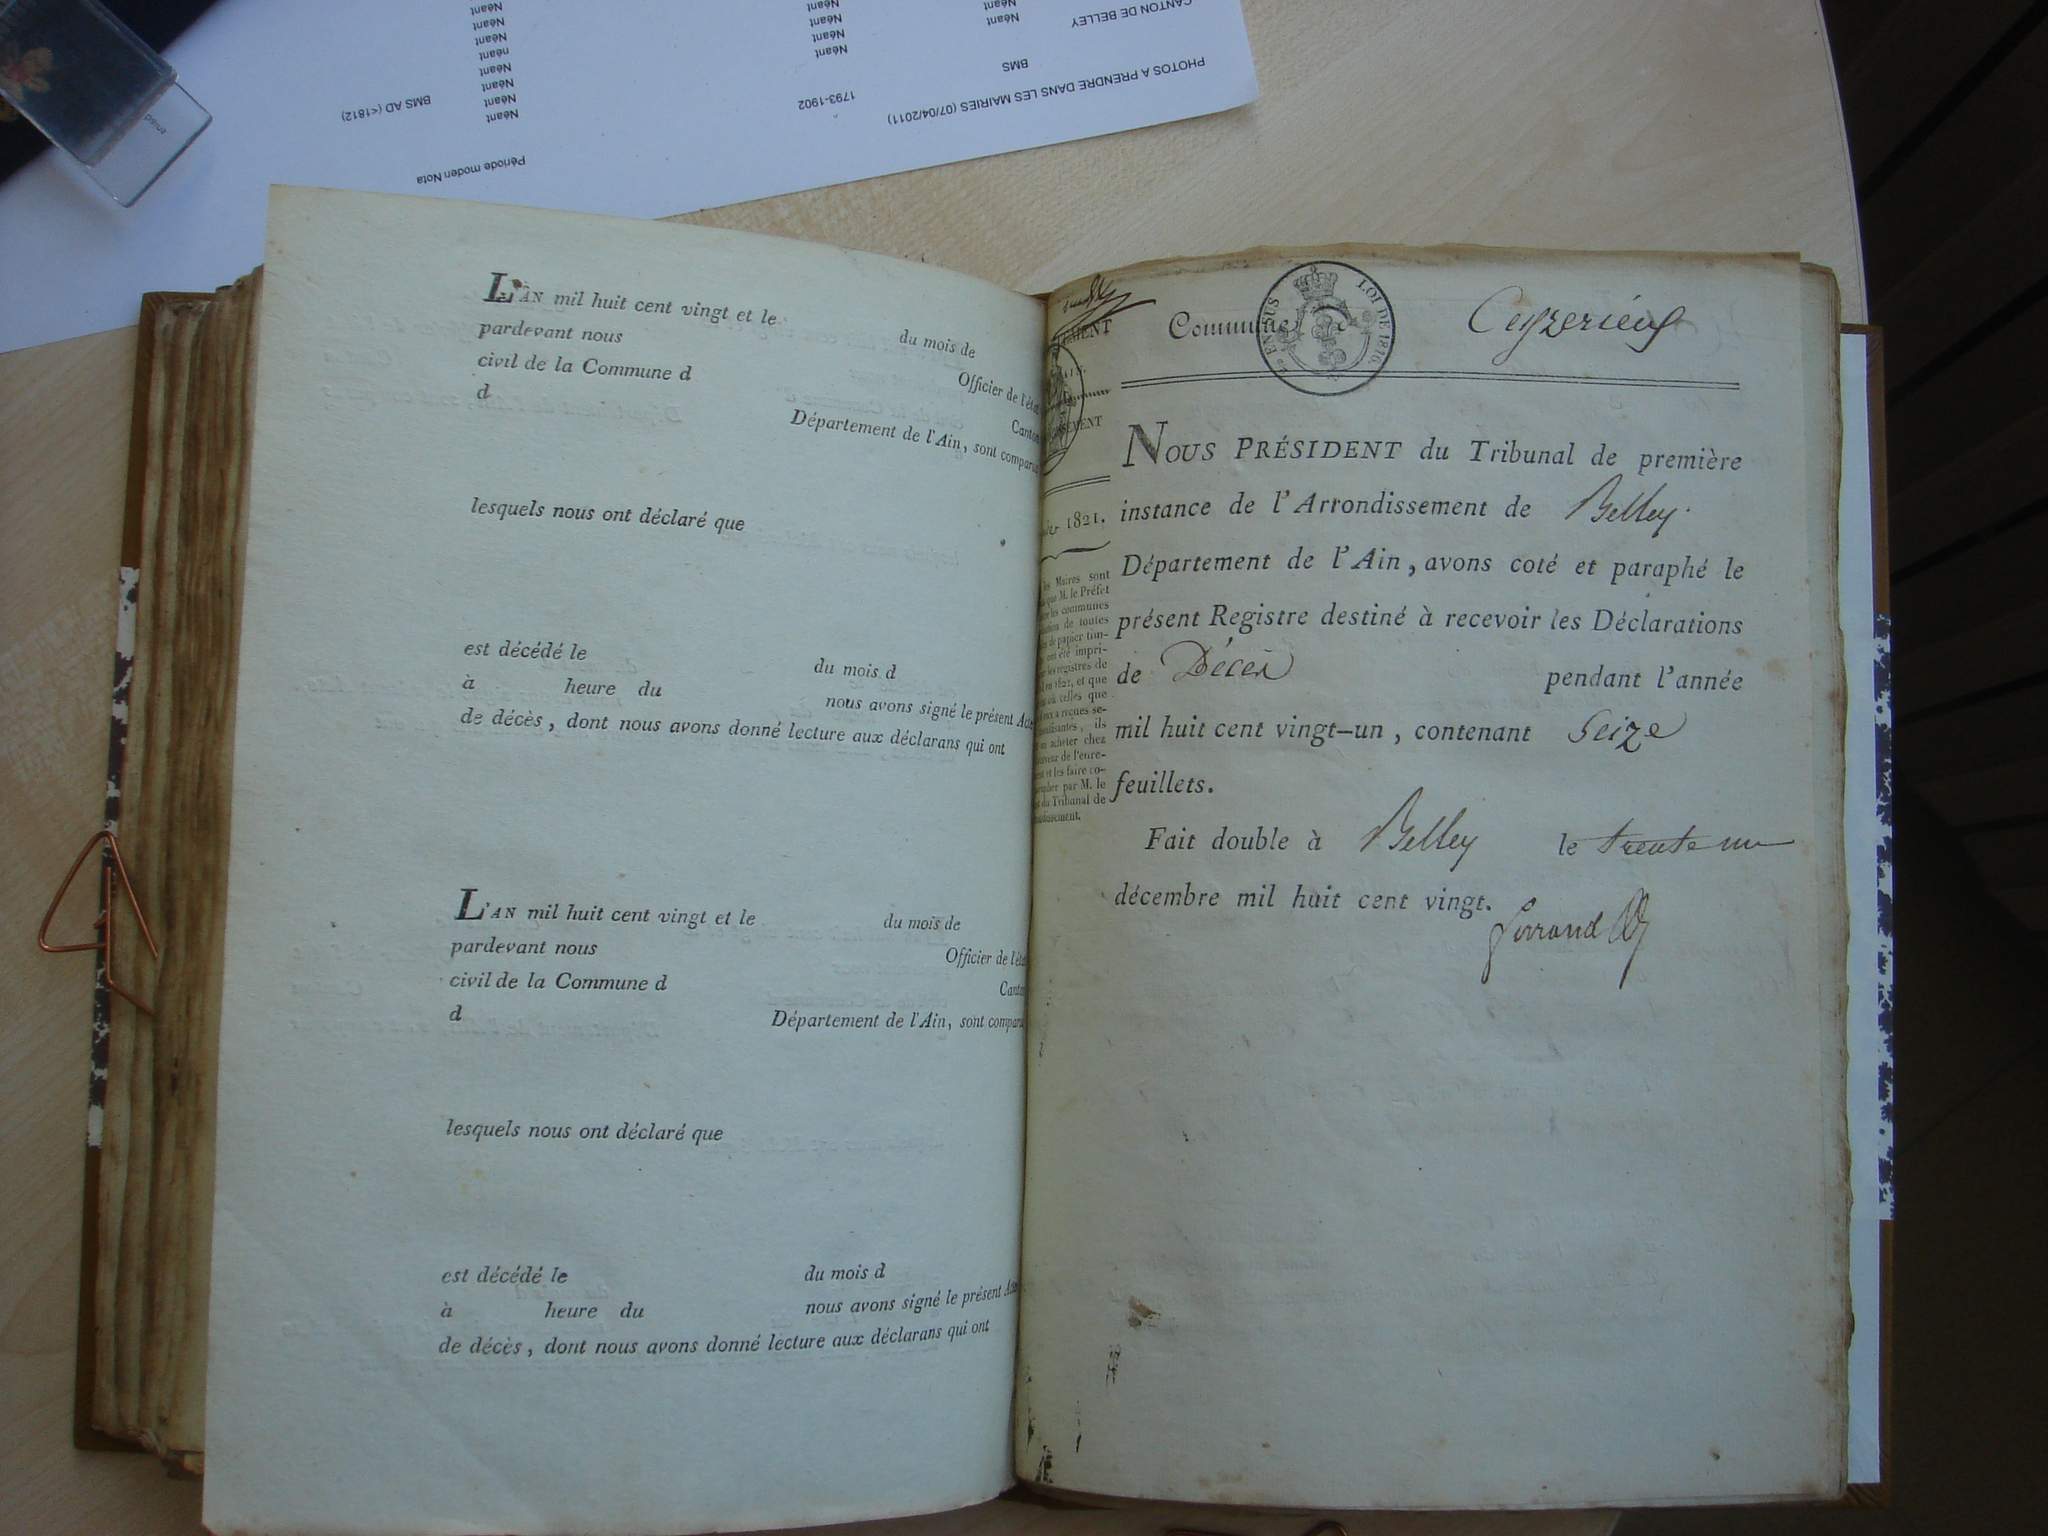 PHOTOS A PRENDRE DANS LES MAIRIES (07/04/2011)
CANTON DE BELLEY
BMS
1793-1902
BMS AD (<1812)
Période moden Nota
Néant
Néant
Néant
Néant
néant
Néant
Néant
Néant
Néant
Néant
Néant
Néant
Néant
L'AN mil huit cent vingt et le du mois de
pardevant nous Officier de l'état
civil de la Commune d Canton
d Département de l'Ain, sont comparu
lesquels nous ont déclaré que
est décédé le du mois d
à heure du nous avons signé le présent Acte
de décès, dont nous avons donné lecture aux déclarans qui ont
L'AN mil huit cent vingt et le du mois de
pardevant nous Officier de l'état
civil de la Commune d Canton
d Département de l'Ain, sont comparu
lesquels nous ont déclaré que
est décédé le du mois d
à heure du nous avons signé le présent Acte
de décès, dont nous avons donné lecture aux déclarans qui ont
Commune de Ceyzerieux
EN SUS LOI DE 1816
NOUS PRÉSIDENT du Tribunal de première
instance de l'Arrondissement de Belley.
Département de l'Ain, avons coté et paraphé le
présent Registre destiné à recevoir les Déclarations
de Décès pendant l'année
mil huit cent vingt-un, contenant Seize
feuillets.
Fait double à Belley le trente un
décembre mil huit cent vingt.
1821.
les Maires sont
que M. le Préfet
les communes
de toutes
de papier tim-
ont été impri-
les registres de
en 1821, et que
celles que
a reçues se-
, ils
acheter chez
de l'enre-
et les faire co-
par M. le
du Tribunal de